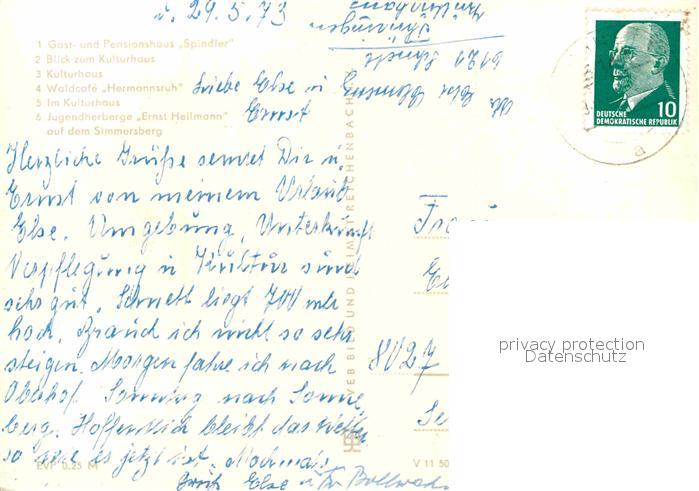 d. 29.5.73
1 Gast- und Pensionshaus „Spindler"
2 Blick zum Kulturhaus
3 Kulturhaus
4 Waldcafé „Hermannsruh"
5 Im Kulturhaus
6 Jugendherberge „Ernst Heilmann"
auf dem Simmersberg
Liebe Else u
Ernst
Herzliche Grüße sendet Dir u.
Ernst von meinem Urlaub
Else. Umgebung, Unterkunft
Verpflegung u Kultur sind
sehr gut. Schnett liegt 700 mtr
hoch. Brauch ich nicht so sehr
steigen. Morgen fahre ich nach
Oberhof. Sonntag nach Sonne
berg. Hoffentlich bleibt das Wetter
so wie es jetzt ist. Nochmals
Gruß Else u
EVP 0,25 M
VEB BILD UND HEIMAT REICHENBACH
V 11 50
6121 Schnett
DEUTSCHE
DEMOKRATISCHE REPUBLIK
10
8027
privacy protection
Datenschutz